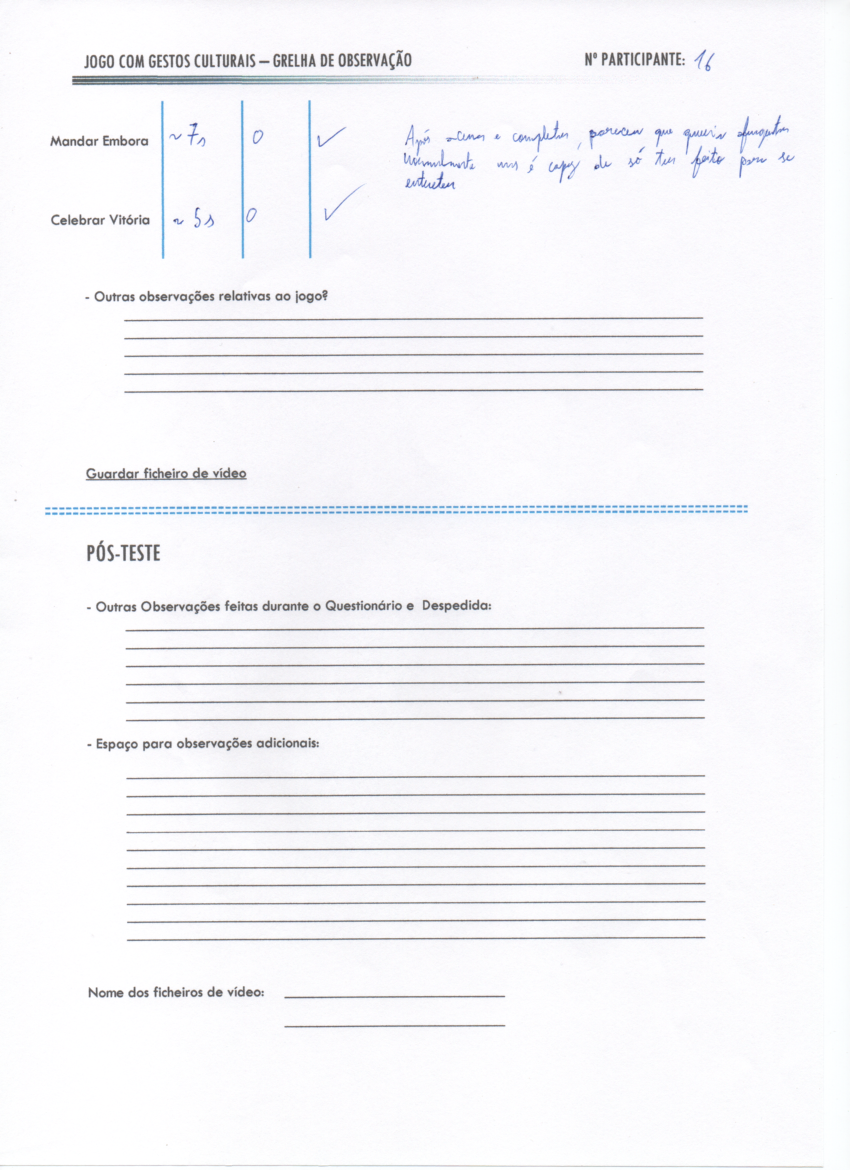 JOGO COM GESTOS CULTURAIS – GRELHA DE OBSERVAÇÃO
Nº PARTICIPANTE: 16
Mandar Embora ~ 7s 0 ✓
Após acenar e completar, pareceu que queria
mas é capaz de só ter feito para se
entreter
Celebrar Vitória ~ 5s 0 ✓
- Outras observações relativas ao jogo?
Guardar ficheiro de vídeo
PÓS-TESTE
- Outras Observações feitas durante o Questionário e Despedida:
- Espaço para observações adicionais:
Nome dos ficheiros de vídeo: